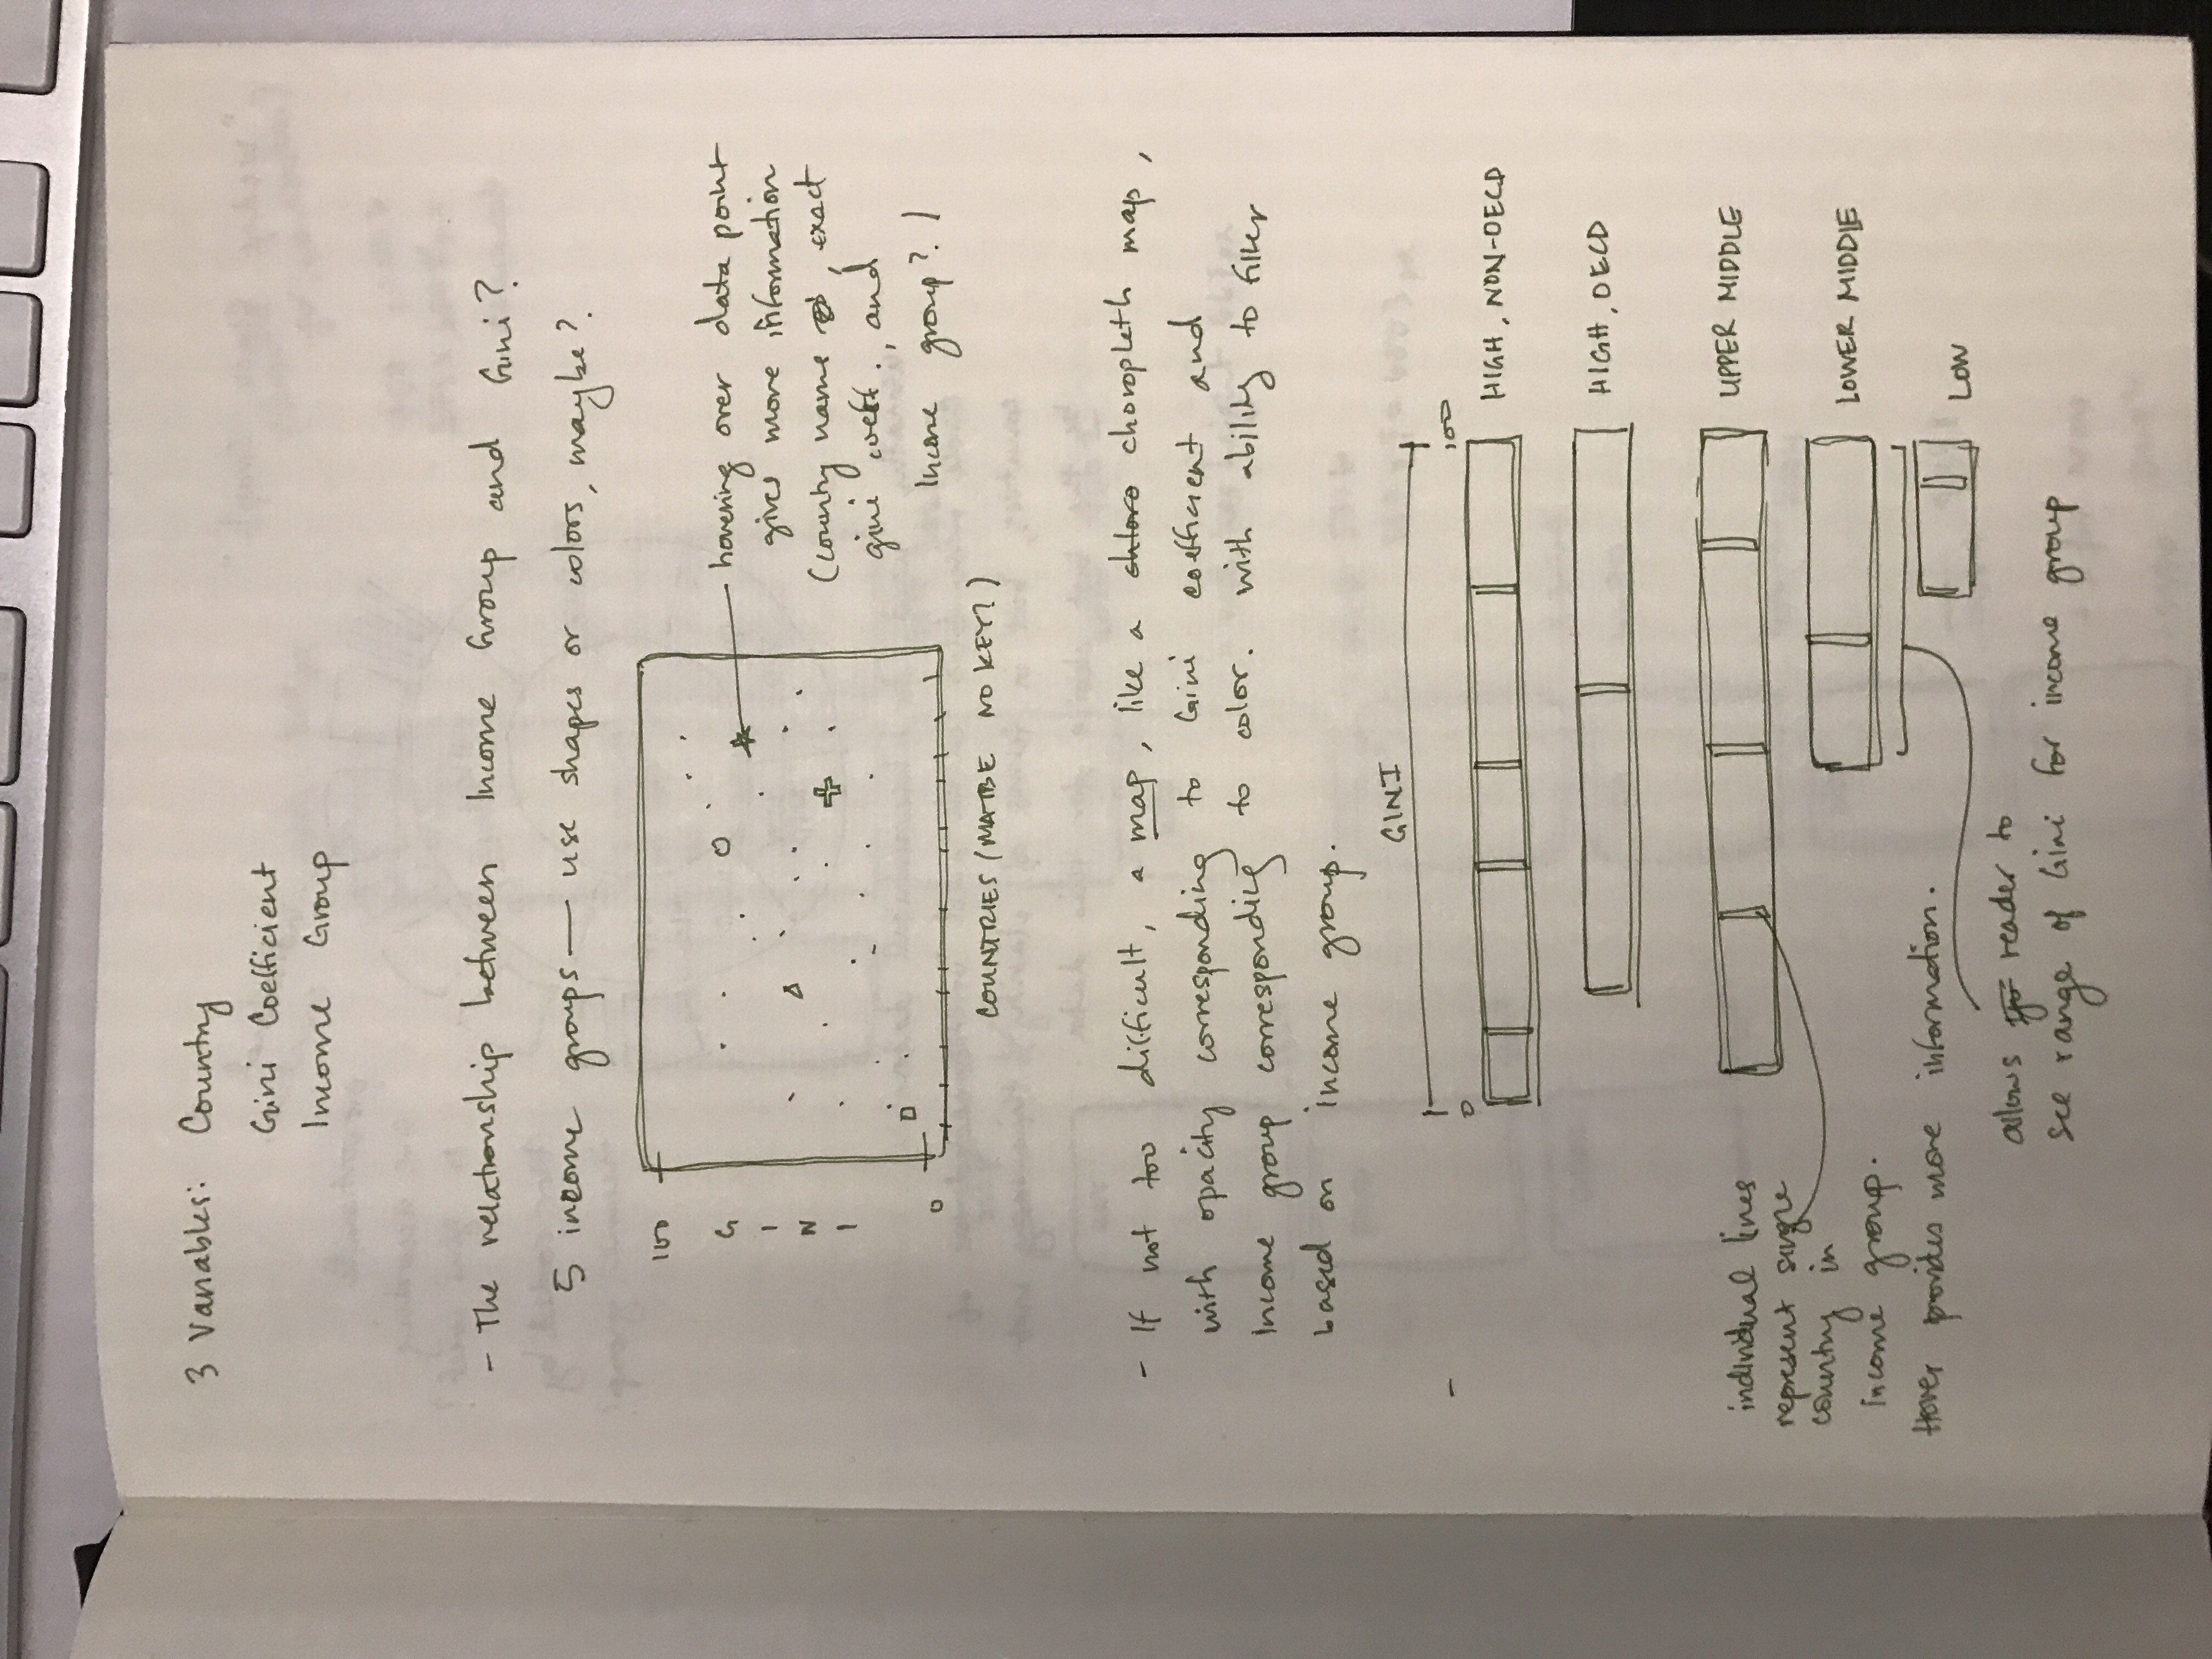 3 Variables: Country
Gini Coefficient
Income Group
- The relationship between Income Group and Gini?
5 income groups — use shapes or colors, maybe?
100
G
I
N
I
0
hovering over data point
gives more information
(country name , exact
gini coeff., and
Income group?)
COUNTRIES (MAYBE NO KEY?)
- If not too difficult, a map, like a chloro choropleth map,
with opacity corresponding to Gini coefficient and
Income group corresponding to color. with ability to filter
based on income group.
GINI
-
0
100
HIGH, NON-OECD
HIGH, OECD
UPPER MIDDLE
individual lines
represent single
country in
income group.
Hover provides more information.
LOWER MIDDLE
LOW
allows reader to
see range of Gini for income group